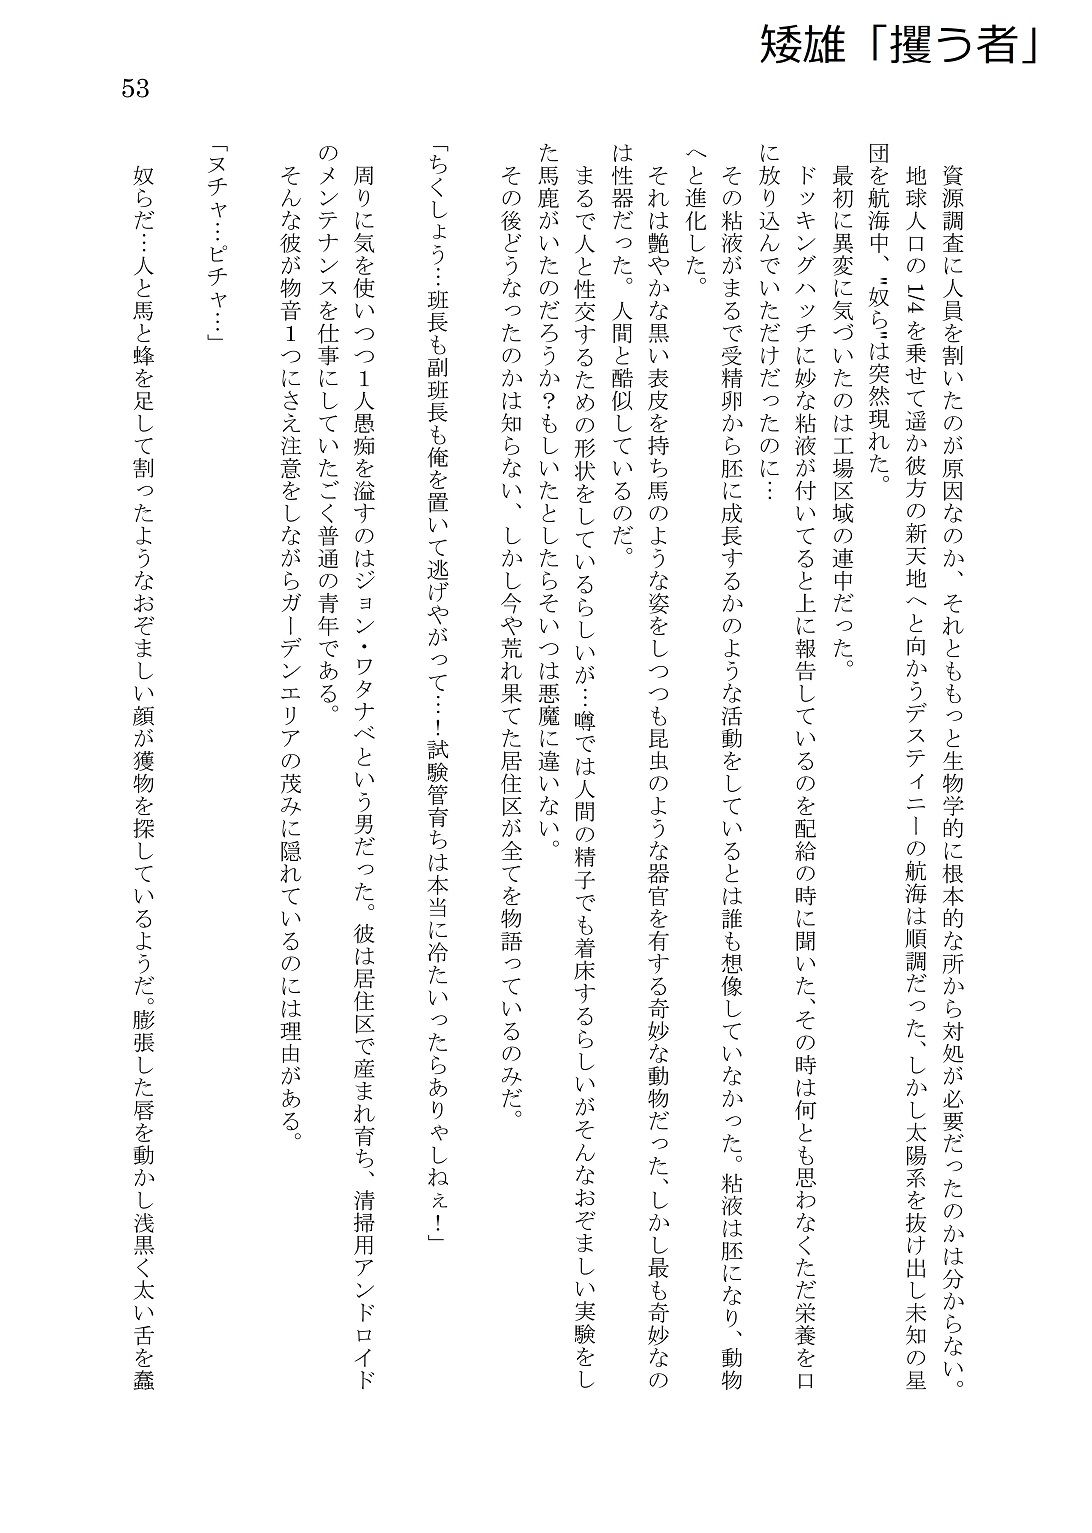 矮雄「攫う者」
53
資源調査に人員を割いたのが原因なのか、それとももっと生物学的に根本的な所から対処が必要だったのかは分からない。
地球人口の1/4を乗せて遥か彼方の新天地へと向かうデスティニーの航海は順調だった、しかし太陽系を抜け出し未知の星
団を航海中、"奴ら"は突然現れた。
最初に異変に気づいたのは工場区域の連中だった。
ドッキングハッチに妙な粘液が付いてると上に報告しているのを配給の時に聞いた、その時は何とも思わなくただ栄養を口
に放り込んでいただけだったのに…
その粘液がまるで受精卵から胚に成長するかのような活動をしているとは誰も想像していなかった。粘液は胚になり、動物
へと進化した。
それは艶やかな黒い表皮を持ち馬のような姿をしつつも昆虫のような器官を有する奇妙な動物だった、しかし最も奇妙なの
は性器だった。人間と酷似しているのだ。
まるで人と性交するための形状をしているらしいが…噂では人間の精子でも着床するらしいがそんなおぞましい実験をし
た馬鹿がいたのだろうか？もしいたとしたらそいつは悪魔に違いない。
その後どうなったのかは知らない、しかし今や荒れ果てた居住区が全てを物語っているのみだ。
「ちくしょう…班長も副班長も俺を置いて逃げやがって…！試験管育ちは本当に冷たいったらありゃしねぇ！」
周りに気を使いつつ１人愚痴を溢すのはジョン・ワタナベという男だった。彼は居住区で産まれ育ち、清掃用アンドロイド
のメンテナンスを仕事にしていたごく普通の青年である。
そんな彼が物音１つにさえ注意をしながらガーデンエリアの茂みに隠れているのには理由がある。
「ヌチャ…ピチャ…」
奴らだ…人と馬と蜂を足して割ったようなおぞましい顔が獲物を探しているようだ。膨張した唇を動かし浅黒く太い舌を蠢